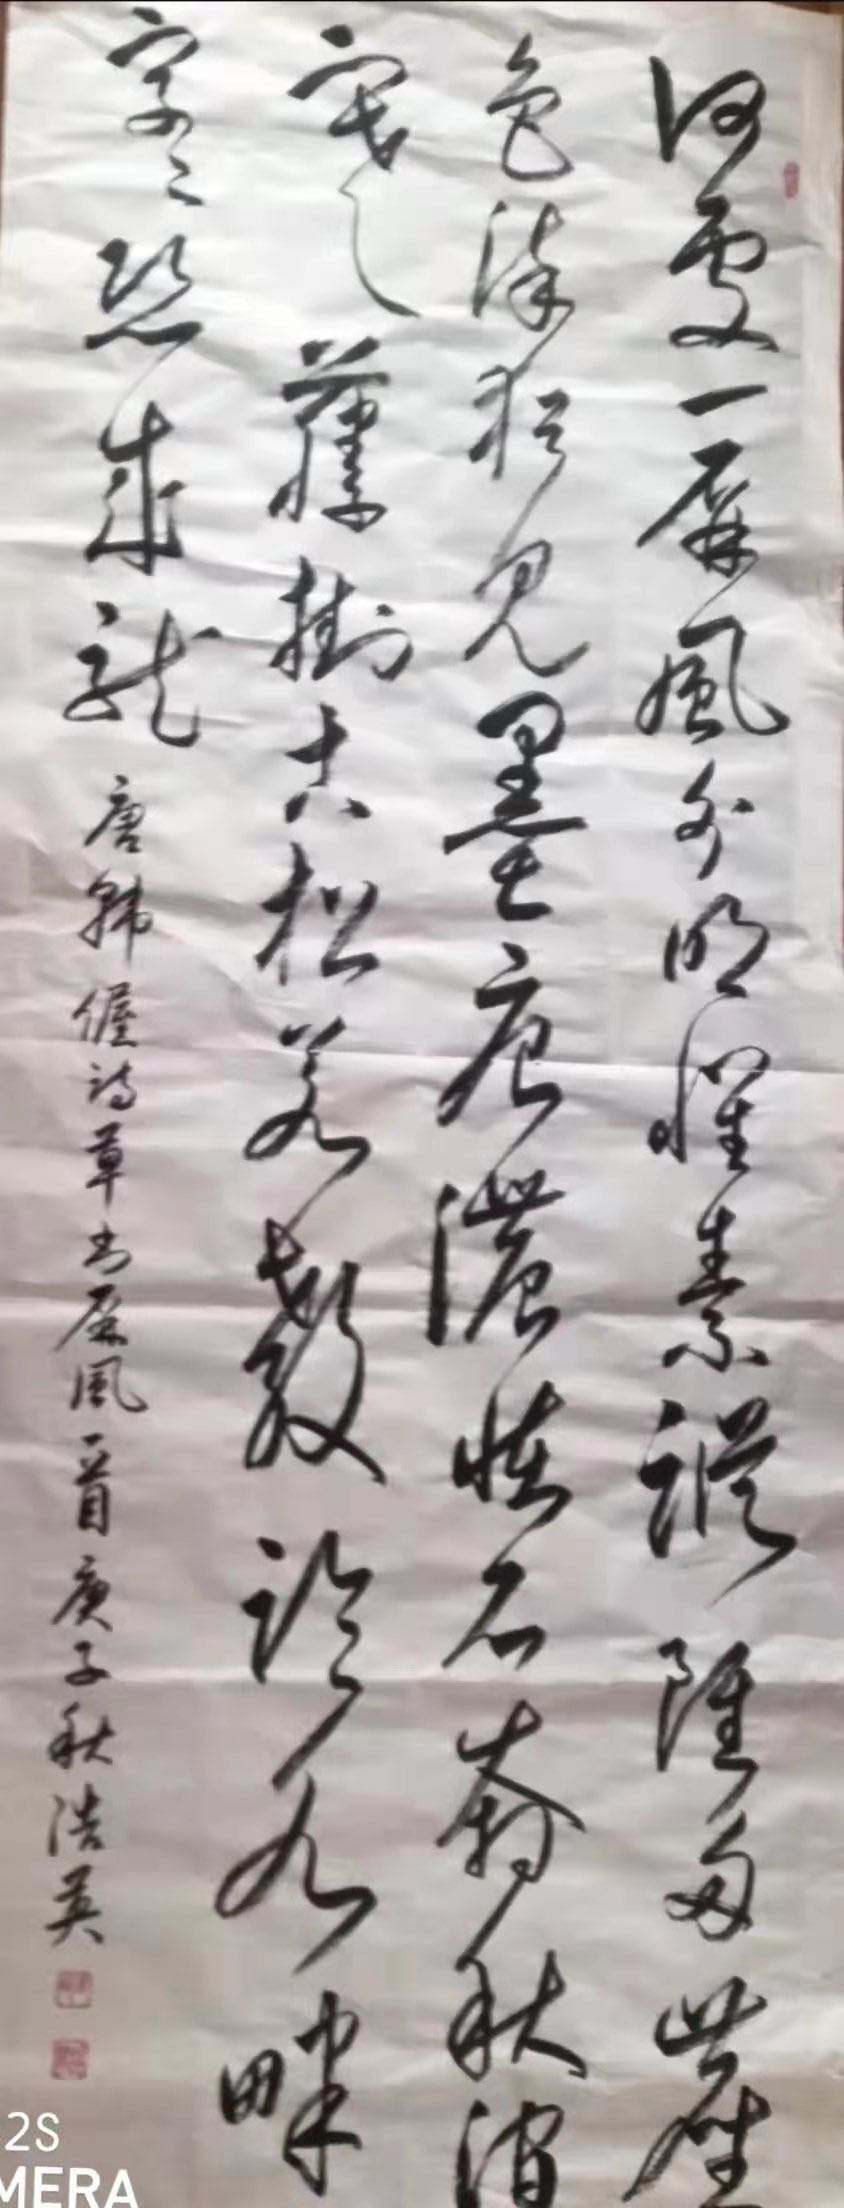 何處一屏風分明懷素蹤雖多塵
色染猶見墨痕濃怪石奔秋澗
寒藤掛古松若教臨水畔
字々恐成龍 唐韓偓詩草书屏風一首 庚子秋浩英
2S
MERA